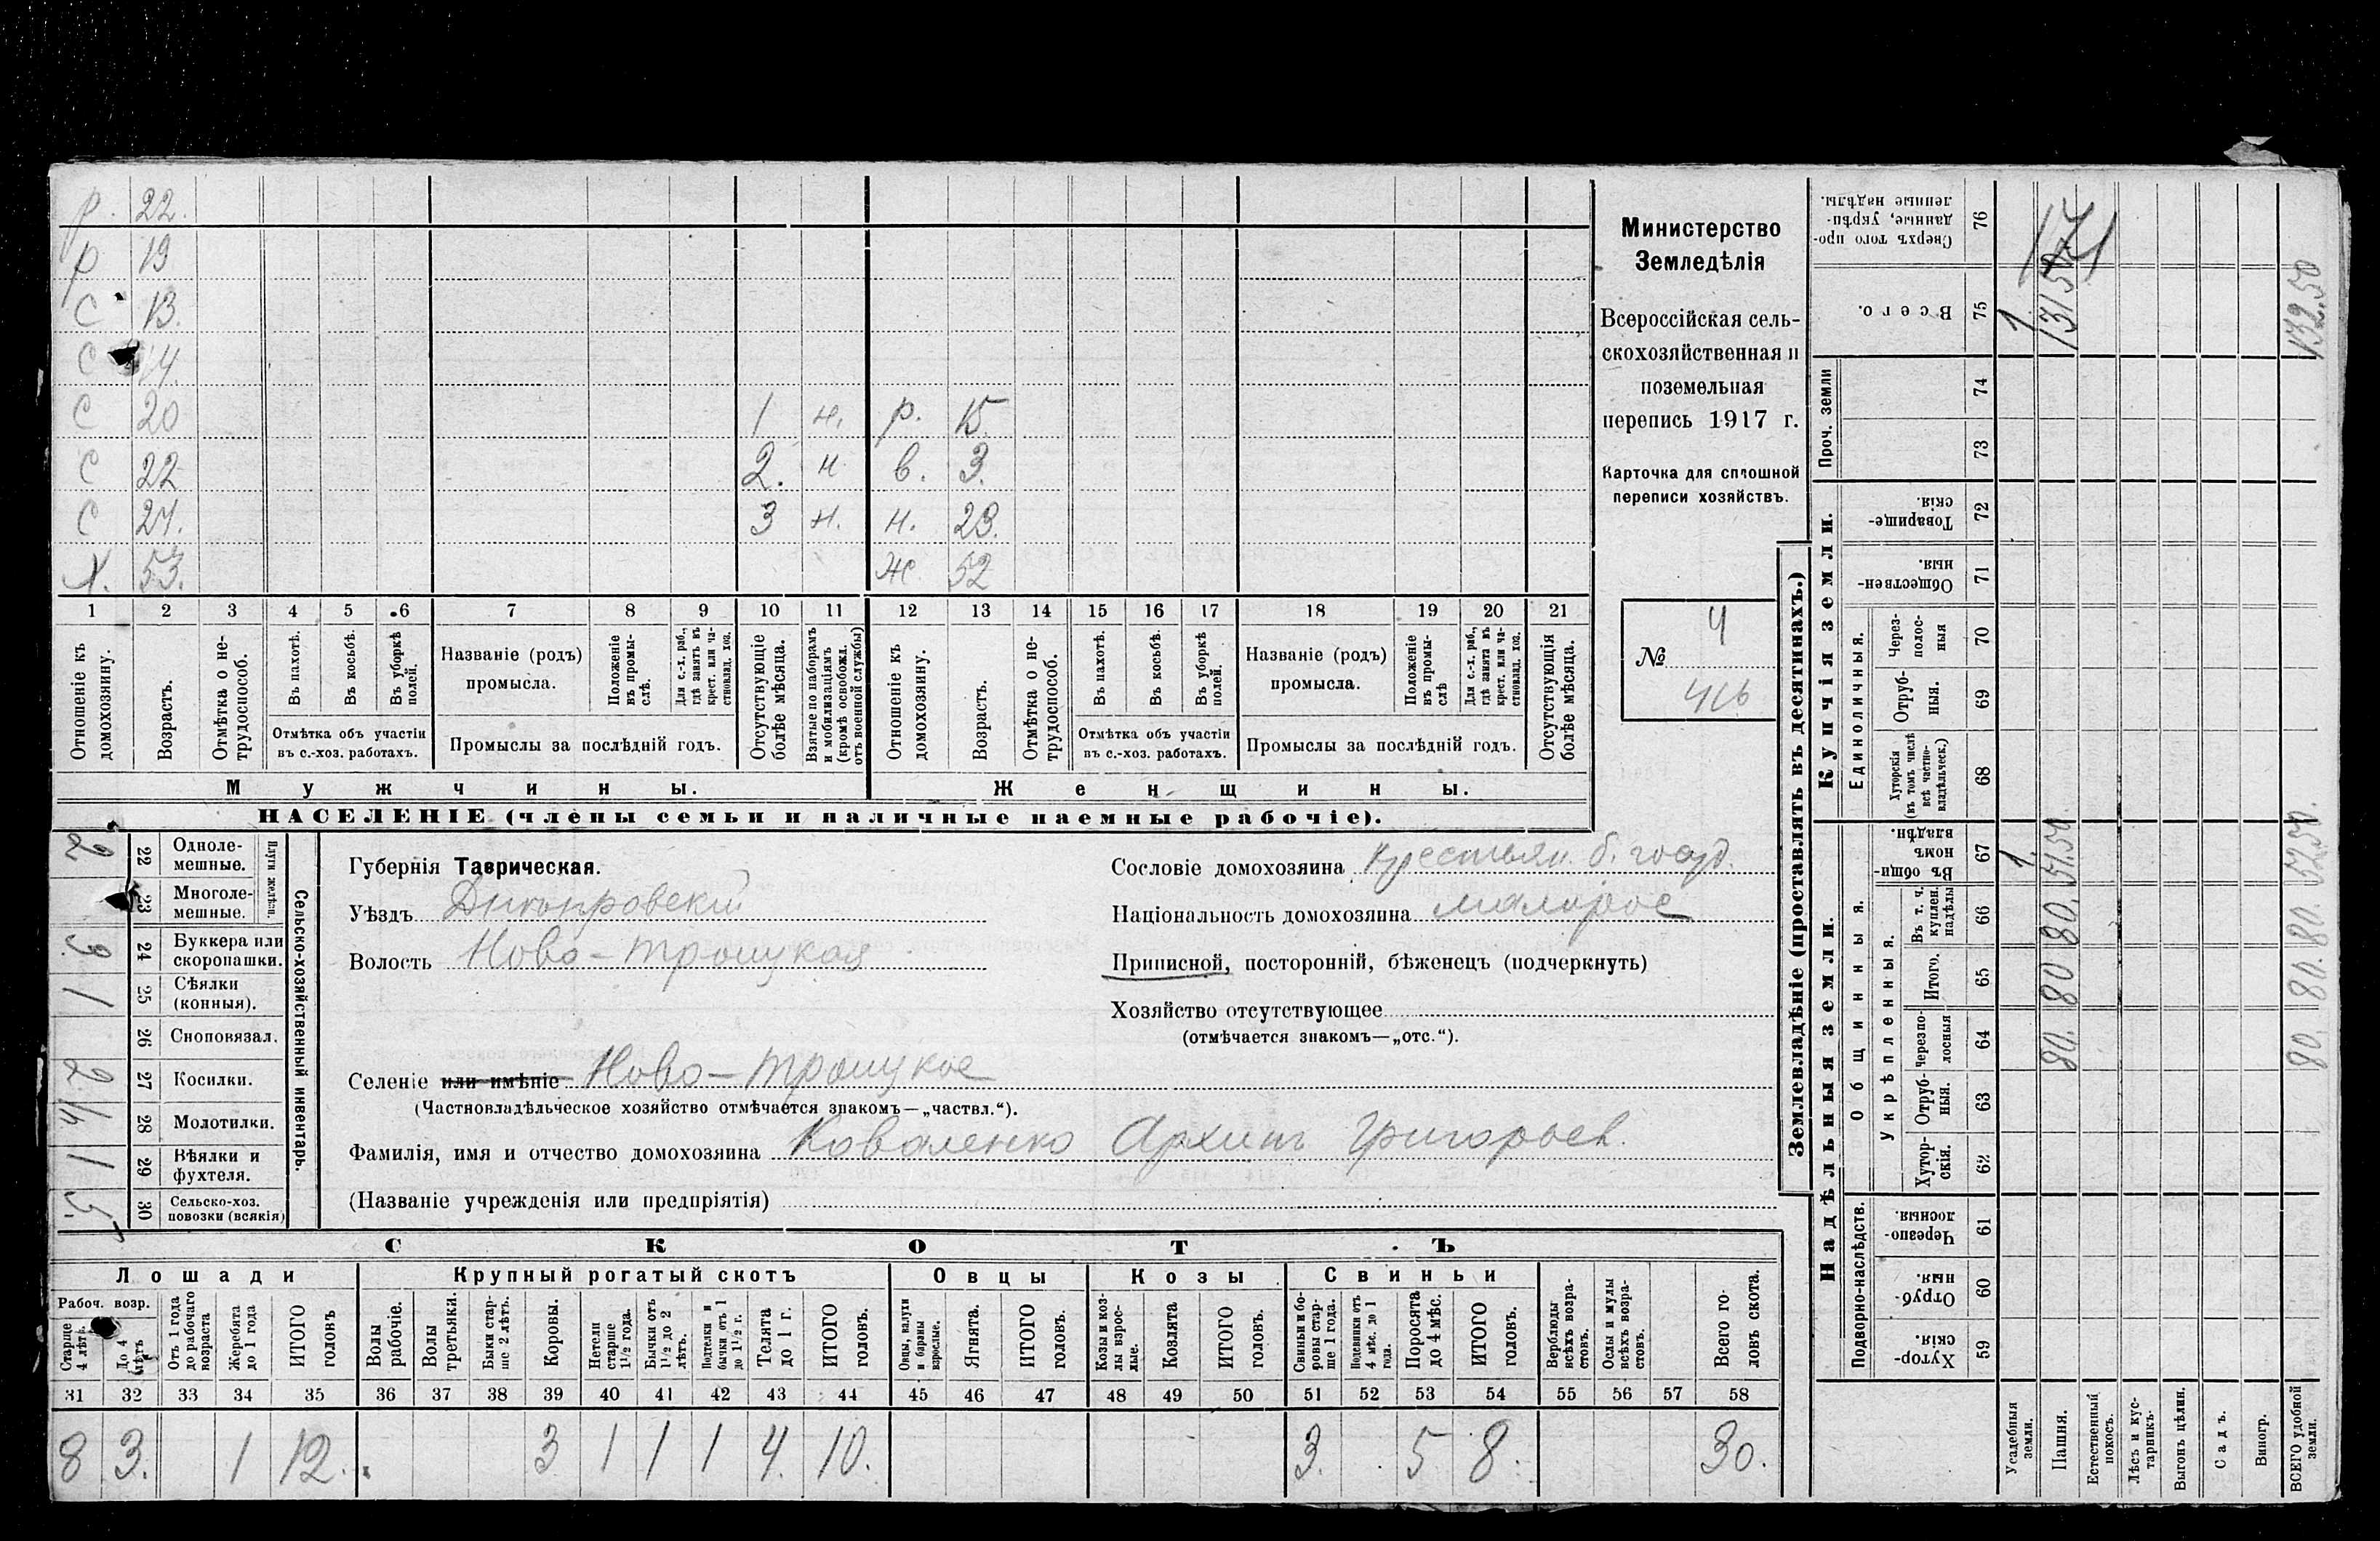 р. 22.
р 19
с 13.
с 14.
с 20 1 н. р. 15.
с 22 2. н в. 3.
с 27. 3 н. н. 23.
х. 53. ж. 52
1 2 3 4 5 6 7 8 9 10 11 12 13 14 15 16 17 18 19 20 21
Отношеніе къ домохозяину.
Возрастъ.
Отмѣтка о не-трудоспособ.
Въ пахотѣ.
Въ косьбѣ.
Въ уборкѣ полей.
Отмѣтка объ участіи въ с.-хоз. работахъ.
Названіе (родъ) промысла.
Положеніе въ промы-слѣ.
Для с.-х. раб., гдѣ занятъ въ крест. или ча-стновлад. хоз.
Промыслы за послѣдній годъ.
Отсутствующіе болѣе мѣсяца.
Взятые по наборамъ и мобилизаціямъ (кромѣ освобожд. отъ военной службы)
Отношеніе къ домохозяину.
Возрастъ.
Отмѣтка о не-трудоспособ.
Въ пахотѣ.
Въ косьбѣ.
Въ уборкѣ полей.
Отмѣтка объ участіи въ с.-хоз. работахъ.
Названіе (родъ) промысла.
Положеніе въ промы-слѣ
Для с.-х. раб., гдѣ занята въ крест. или ча-стновлад. хоз.
Промыслы за послѣдній годъ.
Отсутствующія болѣе мѣсяца.
Мужчины. Женщины.
НАСЕЛЕНІЕ (члены семьи и наличные наемные рабочіе).
Министерство
Земледѣлія
Всероссійская сель-
скохозяйственная и
поземельная
перепись 1917 г.
Карточка для сплошной
переписи хозяйствъ.
№ 4
416
Сельско-хозяйственный инвентарь.
Плуги желѣзн.
2 22 Одноле-мешные.
23 Многоле-мешные.
3. 24 Буккера или скоропашки.
1 25 Сѣялки (конныя).
26 Сноповязал.
2 27 Косилки.
28 Молотилки.
1 29 Вѣялки и фухтеля.
5. 30 Сельско-хоз. повозки (всякія)
Губернія Таврическая.
Уѣздъ Днѣпровскій
Волость Ново-Троицкая
Селеніе или имѣніе Ново-Троицкое
(Частновладѣльческое хозяйство отмѣчается знакомъ—„частвл.“).
Фамилія, имя и отчество домохозяина Коваленко Архипъ Григорьев.
(Названіе учрежденія или предпріятія)
Сословіе домохозяина крестьян. б. госуд.
Національность домохозяина малорос
Приписной, посторонній, бѣженецъ (подчеркнуть)
Хозяйство отсутствующее
(отмѣчается знакомъ—„отс.“).
СКОТЪ
Лошади Крупный рогатый скотъ Овцы Козы Свиньи
Рабоч. возр.
Старше 4 лѣтъ.
До 4 лѣтъ
Отъ 1 года до рабочаго возраста
Жеребята до 1 года
ИТОГО головъ
Волы рабочіе.
Волы третьяки.
Быки стар-ше 2 лѣтъ.
Коровы.
Нетели старше 1½ года.
Бычки отъ 1½ до 2 лѣтъ.
Подтелки и бычки отъ 1 до 1½ г.
Телята до 1 г.
ИТОГО головъ.
Овцы, валухи и бараны взрослые.
Ягнята.
ИТОГО головъ.
Козы и коз-лы взрос-лые.
Козлята
ИТОГО головъ.
Свиньи и бо-ровы стар-ше 1 года.
Подсвинки отъ 4 мѣс. до 1 года.
Поросята до 4 мѣс.
ИТОГО головъ.
Верблюды всѣхъ возра-стовъ.
Ослы и мулы всѣхъ возра-стовъ.
Всего го-ловъ скота.
31 32 33 34 35 36 37 38 39 40 41 42 43 44 45 46 47 48 49 50 51 52 53 54 55 56 57 58
8 3. 1 12. 3 1 1 1 4. 10. 3. 5 8. 30.
Землевладѣніе (проставлять въ десятинахъ.)
Надѣльныя земли.
Купчія земли.
Проч. земли
Подворно-наслѣдств.
Общинныя.
Укрѣпленныя.
Единоличныя.
Хутор-скія. 59
Отруб-ныя. 60
Черезпо-лосныя. 61
Хутор-скія. 62
Отруб-ныя. 63
Черезпо-лосныя 64
Итого. 65
Въ т. ч. куплен. надѣлы 66
Въ общин-номъ владѣн. 67
Хуторскія (въ томъ числѣ всѣ частно-владѣльческ.) 68
Отруб-ныя. 69
Через-полос-ныя 70
Обществен-ныя. 71
Товарище-скія. 72
73
74
Всего. 75
Сверхъ того про-данные, укрѣп-ленные надѣлы. 76
Усадебныя земли. 1. 1.
Пашня. 80. 80 80. 51.50 131 50
171
Естественный покосъ.
Лѣсъ и кус-тарникъ.
Выгонъ цѣлин.
Садъ.
Виногр.
ВСЕГО удобной земли. 80. 80. 80. 52.50. 132.50